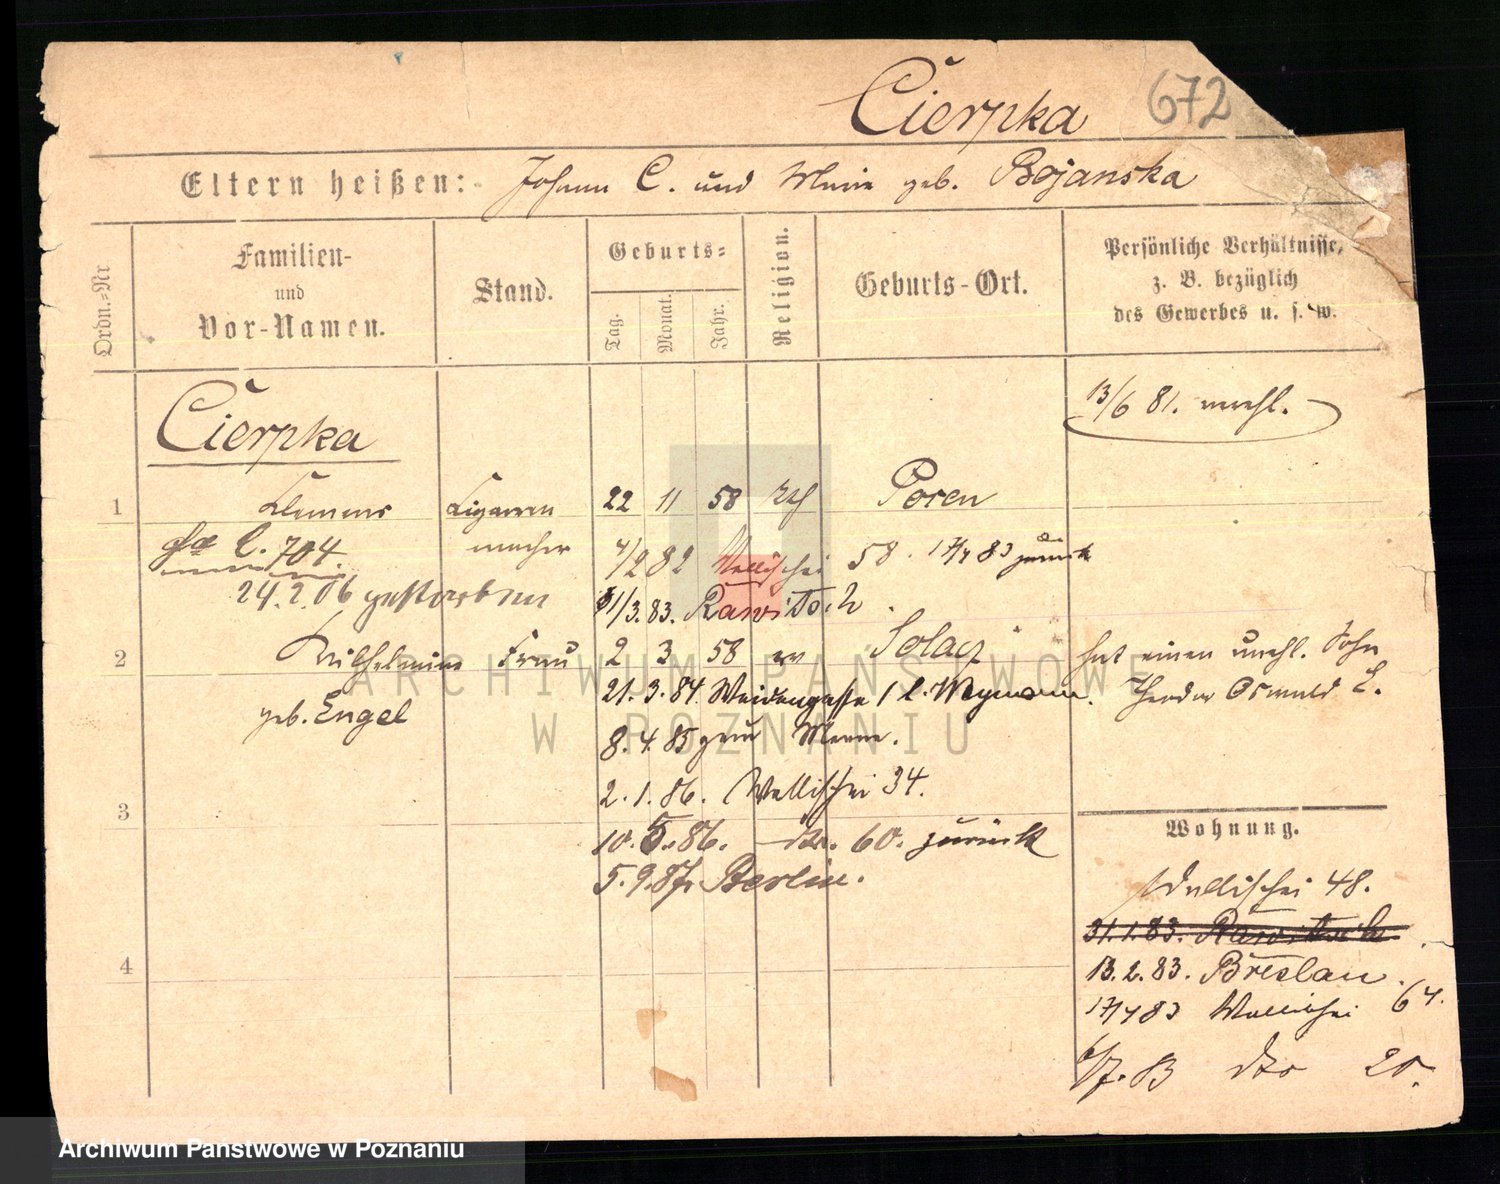 Cierpka 672
Eltern heißen: Johann C. und Marie geb. Bojanska
Ordn.-Nr
Familien-
und
Vor-Namen.
Stand.
Geburts-
Tag.
Monat.
Jahr.
Religion.
Geburts-Ort.
Persönliche Verhältnisse,
z. B. bezüglich
des Gewerbes u. s. w.
Cierpka
13/6 81. verehl.
1 Klemens Cigarren 22 11 58 rth Posen
C. 704. macher 4/2 82 Wallischei 58. 17/4 83 zurück
24.2.06 gestorben 31/3.83. Rawitsch
2 Wilhelmine Frau 2 3 58 ev Solacz hat einen unehl. Sohn
geb. Engel 21.3.84. Weidengasse 1 b. Weymann. Theodor Oswald E.
8.4.85 zum Manne.
2.1.86. Wallischei 34.
3
10.5.86. dto. 60. zurück
5.9.87. Berlin.
4
Wohnung.
Wallischei 48.
31.1.83. Rawitsch
13.2.83. Breslau.
17/4 83 Wallischei 64.
6/7.83 dto 20.
ARCHIWUM PAŃSTWOWE
W POZNANIU
Archiwum Państwowe w Poznaniu